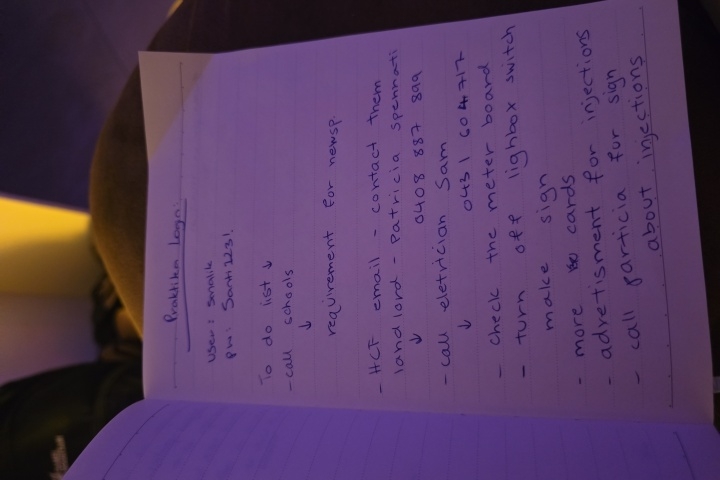 Praktika Login:
user: Smalik
pw: Santi1231
To do list ↓
- call schools
↓
requirement for newsp.
- HCF email - contact them
landlord - Patricia Spennati
↓ 0408 887 899
- call eletrician Sam
↓ 0431 604 717
- check the meter board
- turn off lighbox switch
make sign
- more cards
- adretisment for injections
- call particia for sign
about injections